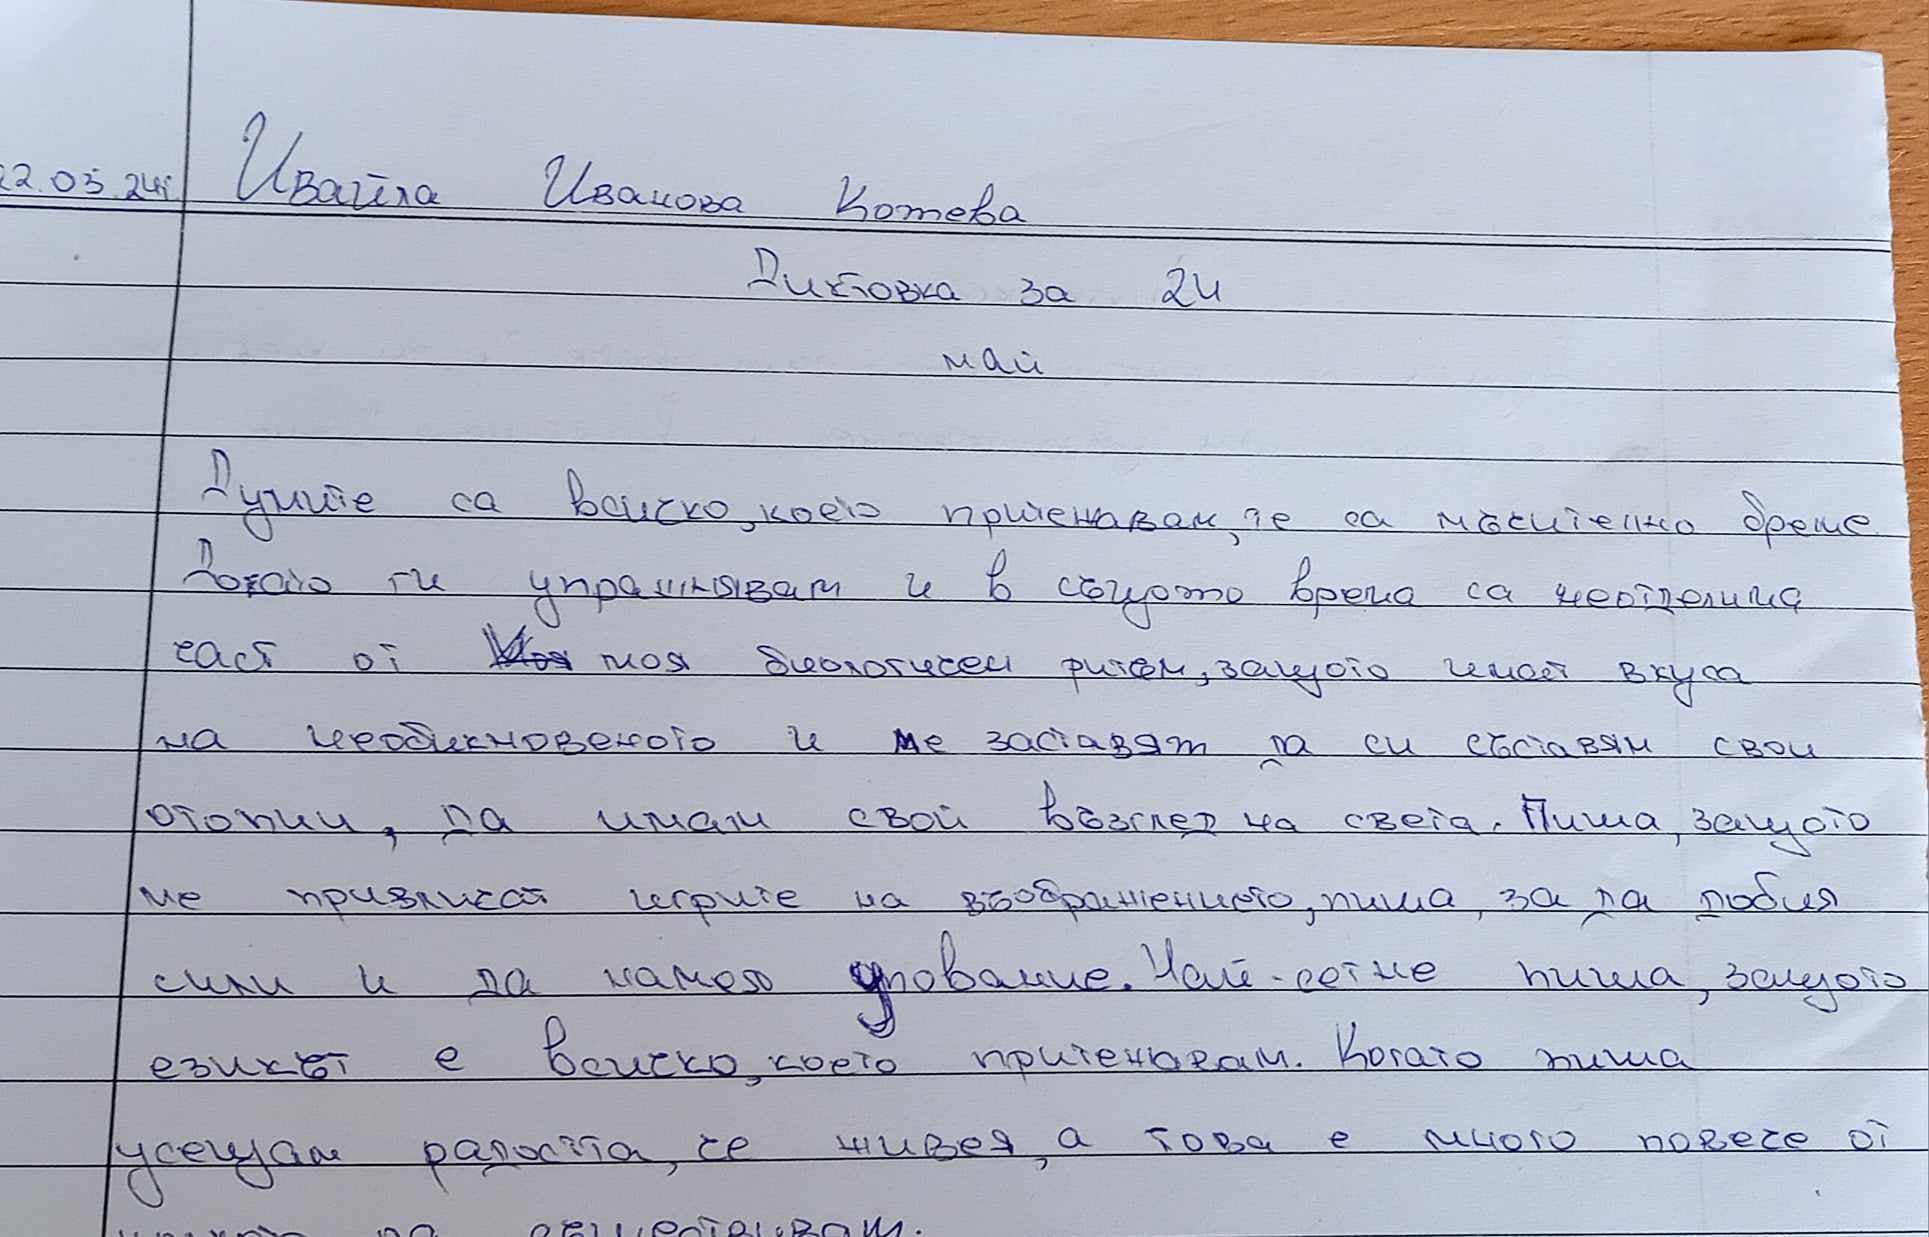 22.05.24г. Ивайла Иванова Котева
Диктовка за 24
май
Думите са всичко, което притежавам, че са мъчително бреме
Догато ги упражнявам и в същото време са неотделима
част от моя биологичен ритъм, защото имат вкуса
на необикновеното и ме заставят да си съставям свои
отопии, да имам свой възглед на света. Пиша, защото
ме привличат игрите на въображението, пиша, за да добия
сили и да намеря упование. Най-сетне пиша, защото
езикът е всичко, което притежавам. Когато пиша
усещам радостта, че живея, а това е много повече от
да съществувам.